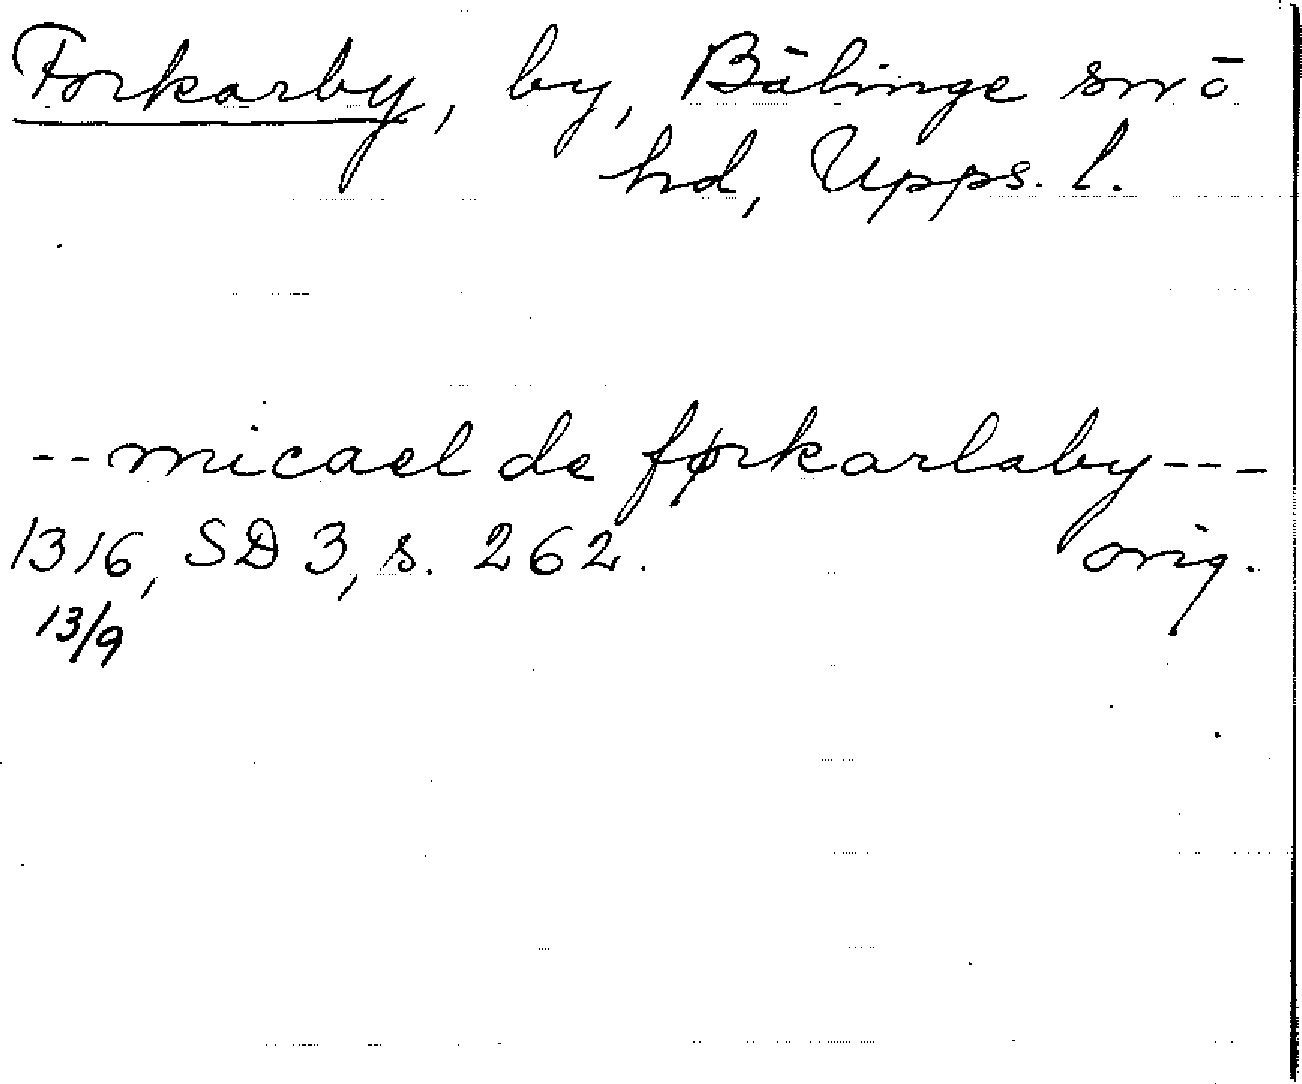 Forkarby, by, Bälinge snö
hd, Upps. l.
--micael de førkarlaby---
1316, SD 3, s. 262. orig.
13/9